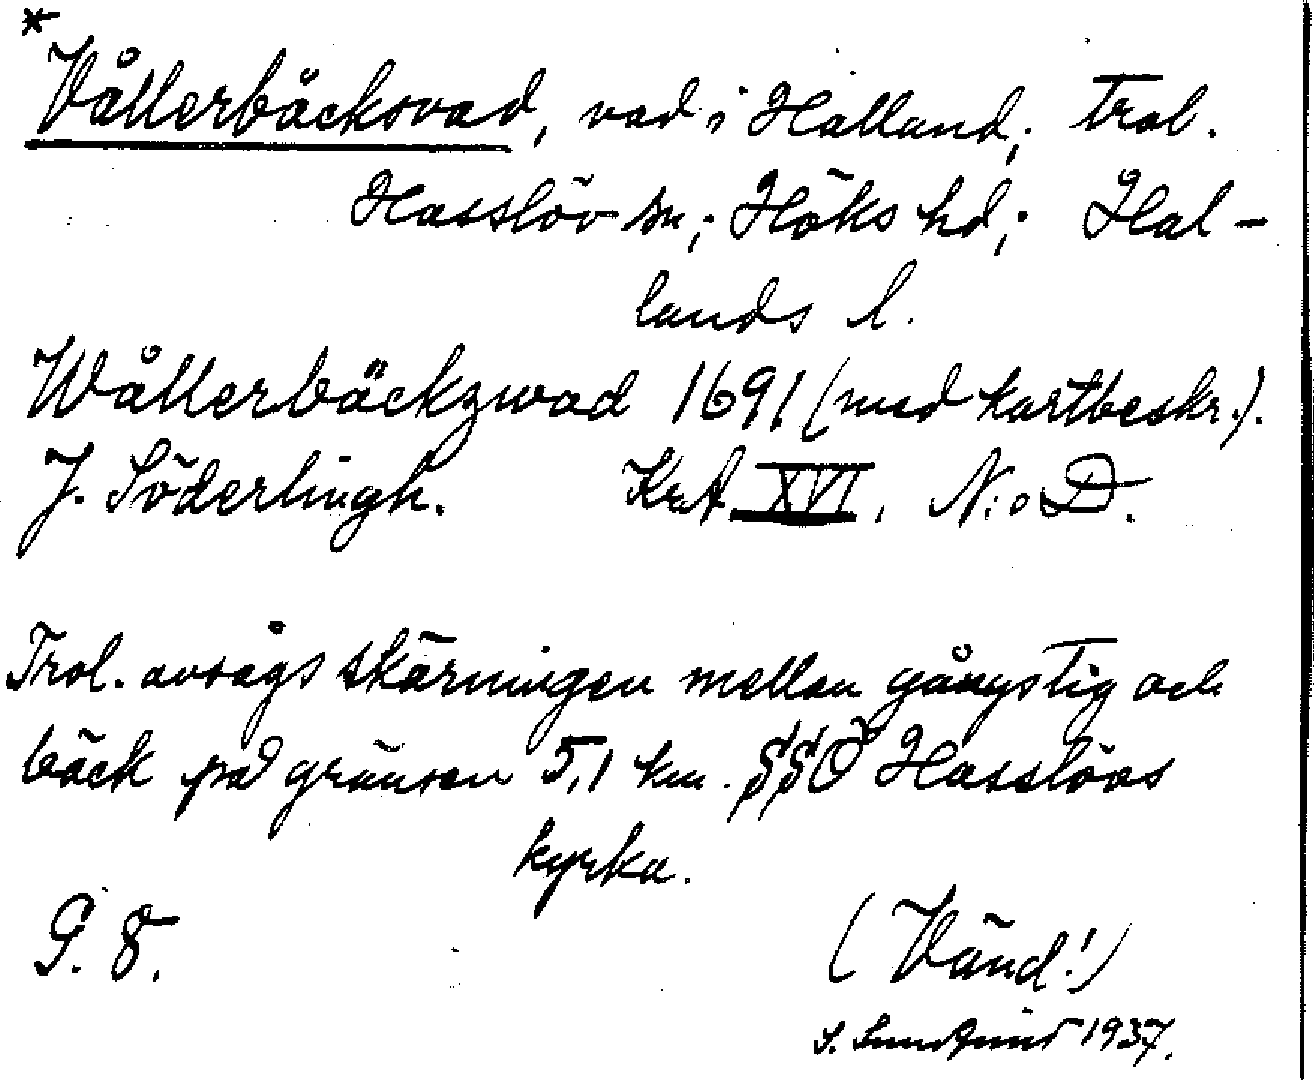 *
Vållerbäcksvad, vad i Halland; trol.
Hasslöv sn; Höks hd; Hal-
lands l.
Wållerbäckzwad 1691 (med kartbeskr.).
J. Söderlingh. KrA XVI. N:o D.
Trol. avsågs skärningen mellan gångstig och
bäck på gränsen 5,1 km. SSÖ Hasslövs
kyrka.
G. 8.
(Vänd!)
S. 1937.